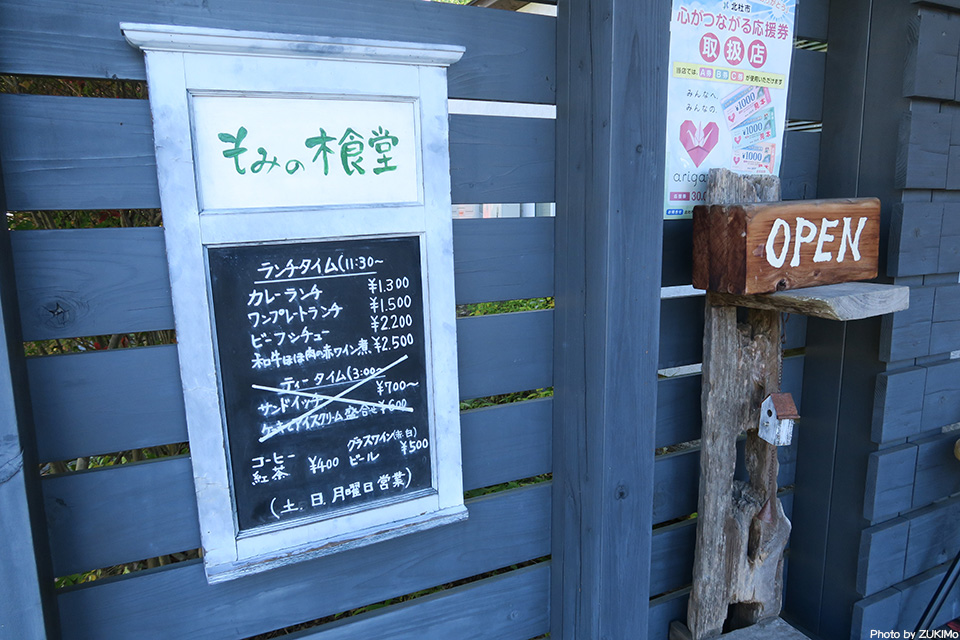 もみの木食堂
ランチタイム(11:30~
カレーランチ ¥1.300
ワンプレトランチ ¥1.500
ビーフシチュー ¥2.200
和牛ほほ肉の赤ワイン煮 ¥2.500
ティータイム(3:00~
サンドイッチ ¥700~
ケーキとアイスクリーム盛合せ ¥600
コーヒー
紅茶 ¥400
グラスワイン(赤.白)
ビール ¥500
(土.日.月曜日営業)
北杜市
心がつながる応援券
取扱店
当店は A券 B券 C券 が使用いただけます
みんなへ、
みんなの。
¥1000
¥1000
¥1000
OPEN
Photo by ZUKIMo